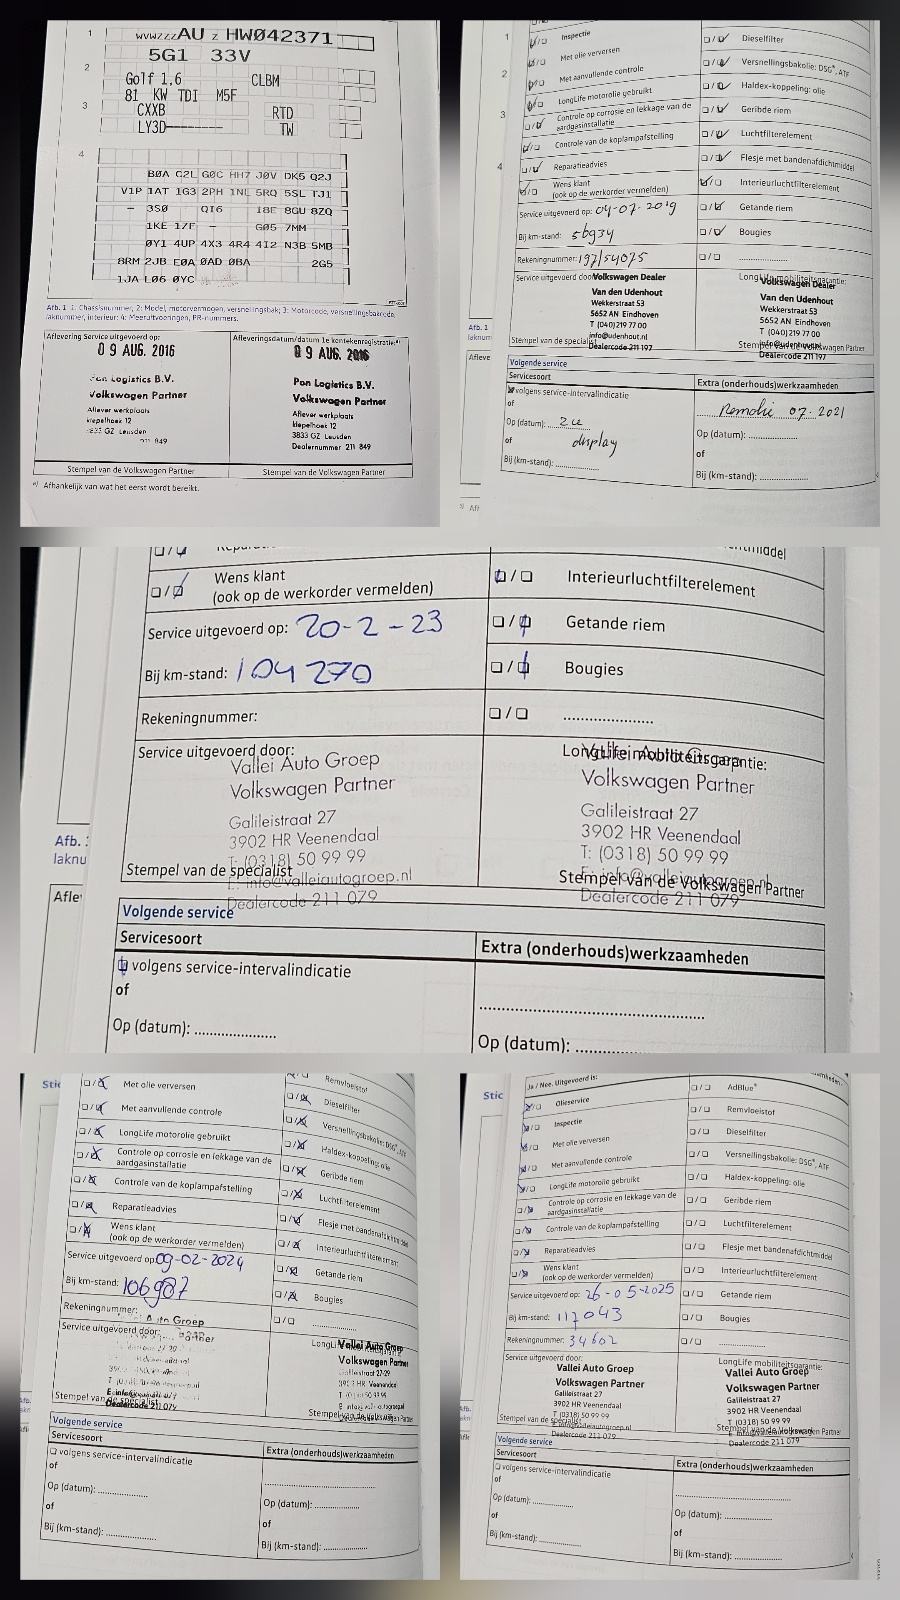 1
WVWZZZAU Z HW042371
5G1 33V
2
Golf 1,6 CLBM
81 KW TDI M5F
3
CXXB RTD
LY3D-------- TW
4
B0A C2L G0C HH7 J0V DK5 Q2J
V1P 1AT 1G3 2PH 1NL 5RQ 5SL TJ1
- 3S0 QI6 18E 8GU 8ZQ
1KE 1/F - G05 7MM
0Y1 4UP 4X3 4R4 4I2 N3B 5MB
8RM 2JB E0A 0AD 0BA 2G5
1JA L06 0YC
Afb. 1 1: Chassisnummer, 2: Model, motorvermogen, versnellingsbak; 3: Motorcode, versnellingsbakcode,
laknummer, interieur; 4: Meeruitvoeringen, PR-nummers.
Aflevering Service uitgevoerd op:
0 9 AUG. 2016
Pon Logistics B.V.
Volkswagen Partner
Aflever werkplaats
klepelhoek 12
3833 GZ Leusden
211 849
Stempel van de Volkswagen Partner
Afleveringsdatum/datum 1e kentekenregistratie:a)
0 9 AUG. 2016
Pon Logistics B.V.
Volkswagen Partner
Aflever werkplaats
klepelhoek 12
3833 GZ Leusden
Dealernummer 211 849
Stempel van de Volkswagen Partner
a) Afhankelijk van wat het eerst wordt bereikt.
1
2
3
4
Inspectie
Met olie verversen
Met aanvullende controle
LongLife motorolie gebruikt
Controle op corrosie en lekkage van de
aardgasinstallatie
Controle van de koplampafstelling
Reparatieadvies
Wens klant
(ook op de werkorder vermelden)
Service uitgevoerd op: 04-07-2019
Bij km-stand: 56934
Rekeningnummer: 197/54075
Service uitgevoerd door:
Volkswagen Dealer
Van den Udenhout
Wekkerstraat 53
5652 AN Eindhoven
T (040) 219 77 00
info@udenhout.nl
Stempel van de specialist
Dealercode 211 197
Dieselfilter
Versnellingsbakolie: DSG®, ATF
Haldex-koppeling: olie
Geribde riem
Luchtfilterelement
Flesje met bandenafdichtmiddel
Interieurluchtfilterelement
Getande riem
Bougies
....................
LongLife mobiliteitsgarantie:
Volkswagen Dealer
Van den Udenhout
Wekkerstraat 53
5652 AN Eindhoven
T (040) 219 77 00
info@udenhout.nl
Stempel van de Volkswagen Partner
Dealercode 211 197
Afb. 1
laknum
Afleve
Volgende service
Servicesoort
volgens service-intervalindicatie
of
Op (datum): zie
of display
Bij (km-stand): ..............
Extra (onderhouds)werkzaamheden
Remolie 07-2021
Op (datum): ..............
of
Bij (km-stand): ..............
Wens klant
(ook op de werkorder vermelden)
Service uitgevoerd op: 20-2-23
Bij km-stand: 104 270
Rekeningnummer:
Service uitgevoerd door:
Vallei Auto Groep
Volkswagen Partner
Galileistraat 27
3902 HR Veenendaal
T: (0318) 50 99 99
Stempel van de specialist
E: info@valleiautogroep.nl
Dealercode 211 079
Interieurluchtfilterelement
Getande riem
Bougies
....................
LongLife mobiliteitsgarantie:
Vallei Auto Groep
Volkswagen Partner
Galileistraat 27
3902 HR Veenendaal
T: (0318) 50 99 99
E: info@valleiautogroep.nl
Stempel van de Volkswagen Partner
Dealercode 211 079
laknu
Afle
Volgende service
Servicesoort
volgens service-intervalindicatie
of
Op (datum): ................
Extra (onderhouds)werkzaamheden
................................................
Op (datum): ................
Stic
Met olie verversen
Met aanvullende controle
LongLife motorolie gebruikt
Controle op corrosie en lekkage van de
aardgasinstallatie
Controle van de koplampafstelling
Reparatieadvies
Wens klant
(ook op de werkorder vermelden)
Service uitgevoerd op: 09-02-2024
Bij km-stand: 106987
Rekeningnummer:
Service uitgevoerd door:
Stempel van de specialist
Dealercode 211 079
Remvloeistof
Dieselfilter
Versnellingsbakolie: DSG®, ATF
Haldex-koppeling: olie
Geribde riem
Luchtfilterelement
Flesje met bandenafdichtmiddel
Interieurluchtfilterelement
Getande riem
Bougies
....................
Vallei Auto Groep
Volkswagen Partner
Galileistraat 27-29
Volgende service
Servicesoort
volgens service-intervalindicatie
of
Op (datum): ..............
of
Bij (km-stand): ..............
Extra (onderhouds)werkzaamheden
..............................
Op (datum): ..............
of
Bij (km-stand): ..............
Stic
Ja / Nee. Uitgevoerd is:
Olieservice
Inspectie
Met olie verversen
Met aanvullende controle
LongLife motorolie gebruikt
Controle op corrosie en lekkage van de
aardgasinstallatie
Controle van de koplampafstelling
Reparatieadvies
Wens klant
(ook op de werkorder vermelden)
Service uitgevoerd op: 26-05-2025
Bij km-stand: 117043
Rekeningnummer: 34602
Service uitgevoerd door:
Vallei Auto Groep
Volkswagen Partner
Galileistraat 27
3902 HR Veenendaal
T (0318) 50 99 99
Stempel van de specialist
Dealercode 211 079
AdBlue®
Remvloeistof
Dieselfilter
Versnellingsbakolie: DSG®, ATF
Haldex-koppeling: olie
Geribde riem
Luchtfilterelement
Flesje met bandenafdichtmiddel
Interieurluchtfilterelement
Getande riem
Bougies
....................
LongLife mobiliteitsgarantie:
Vallei Auto Groep
Volkswagen Partner
Galileistraat 27
3902 HR Veenendaal
T (0318) 50 99 99
Stempel van de Volkswagen Partner
Dealercode 211 079
Volgende service
Servicesoort
volgens service-intervalindicatie
of
Op (datum): ..............
of
Bij (km-stand): ..............
Extra (onderhouds)werkzaamheden
..............................
Op (datum): ..............
of
Bij (km-stand): ..............